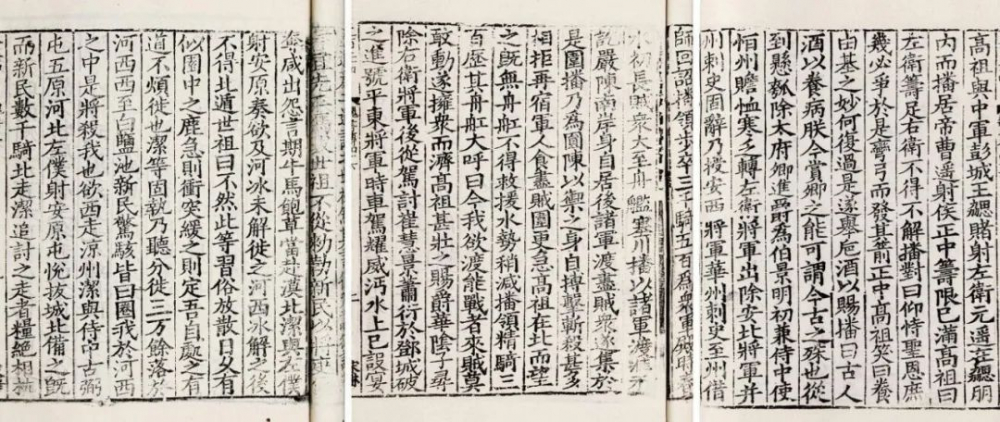 世祖不從勑勒新民以將吏
咸出怨言期牛馬飽草當赴漠北潔與左僕
射安原奏欲及河冰未解徙之河西冰解之後
不得北遁世祖曰不然此等習俗放散日久有
似囿中之鹿急則衝突緩之則定吾自處之有
道不煩徙也潔等固執乃聽分徙三万餘落於
河西西至白鹽池新民驚駭皆曰圈我於河西
之中是將殺我也欲西走涼州潔與侍中古弼
屯五原河北左僕射安原屯悅拔城北備之既
而新民數千騎北走潔追討之走者糧絕相枕
師回詔播領步卒三千騎五百為衆軍殿時春
水初長賊衆大至舟艦塞川播以諸軍渡淮未
訖嚴陳南岸身自居後諸軍渡盡賊衆遂集於
是圍播乃為圓陳以禦之身自搏擊斬殺甚多
相拒再宿軍人食盡賊圍更急高祖在北而望
之既無舟舡不得救援水勢稍減播領精騎三
百歷其舟舡大呼曰今我欲渡能戰者來賊莫
敢動遂擁衆而濟高祖甚壯之賜爵華陰子尋
除右衛將軍後從駕討崔慧景蕭衍於鄧城破
之進號平東將軍時車駕耀威沔水上巳設宴
高祖與中軍彭城王勰賭射左衛元遥在勰朋
内而播居帝曹遥射侯正中籌限已滿高祖曰
左衛籌足右衛不得不解播對曰仰恃聖恩庶
幾必爭於是彎弓而發其箭正中高祖笑曰養
由基之妙何復過是遂舉卮酒以賜播曰古人
酒以養病朕今賞卿之能可謂今古之殊也從
到懸瓠除太府卿進爵為伯景明初兼侍中使
恒州贍恤寒乏轉左衛將軍出除安北將軍并
州刺史固辭乃授安西將軍華州刺史至州借